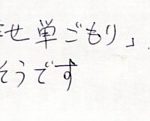 せ単ごもり」
そうです